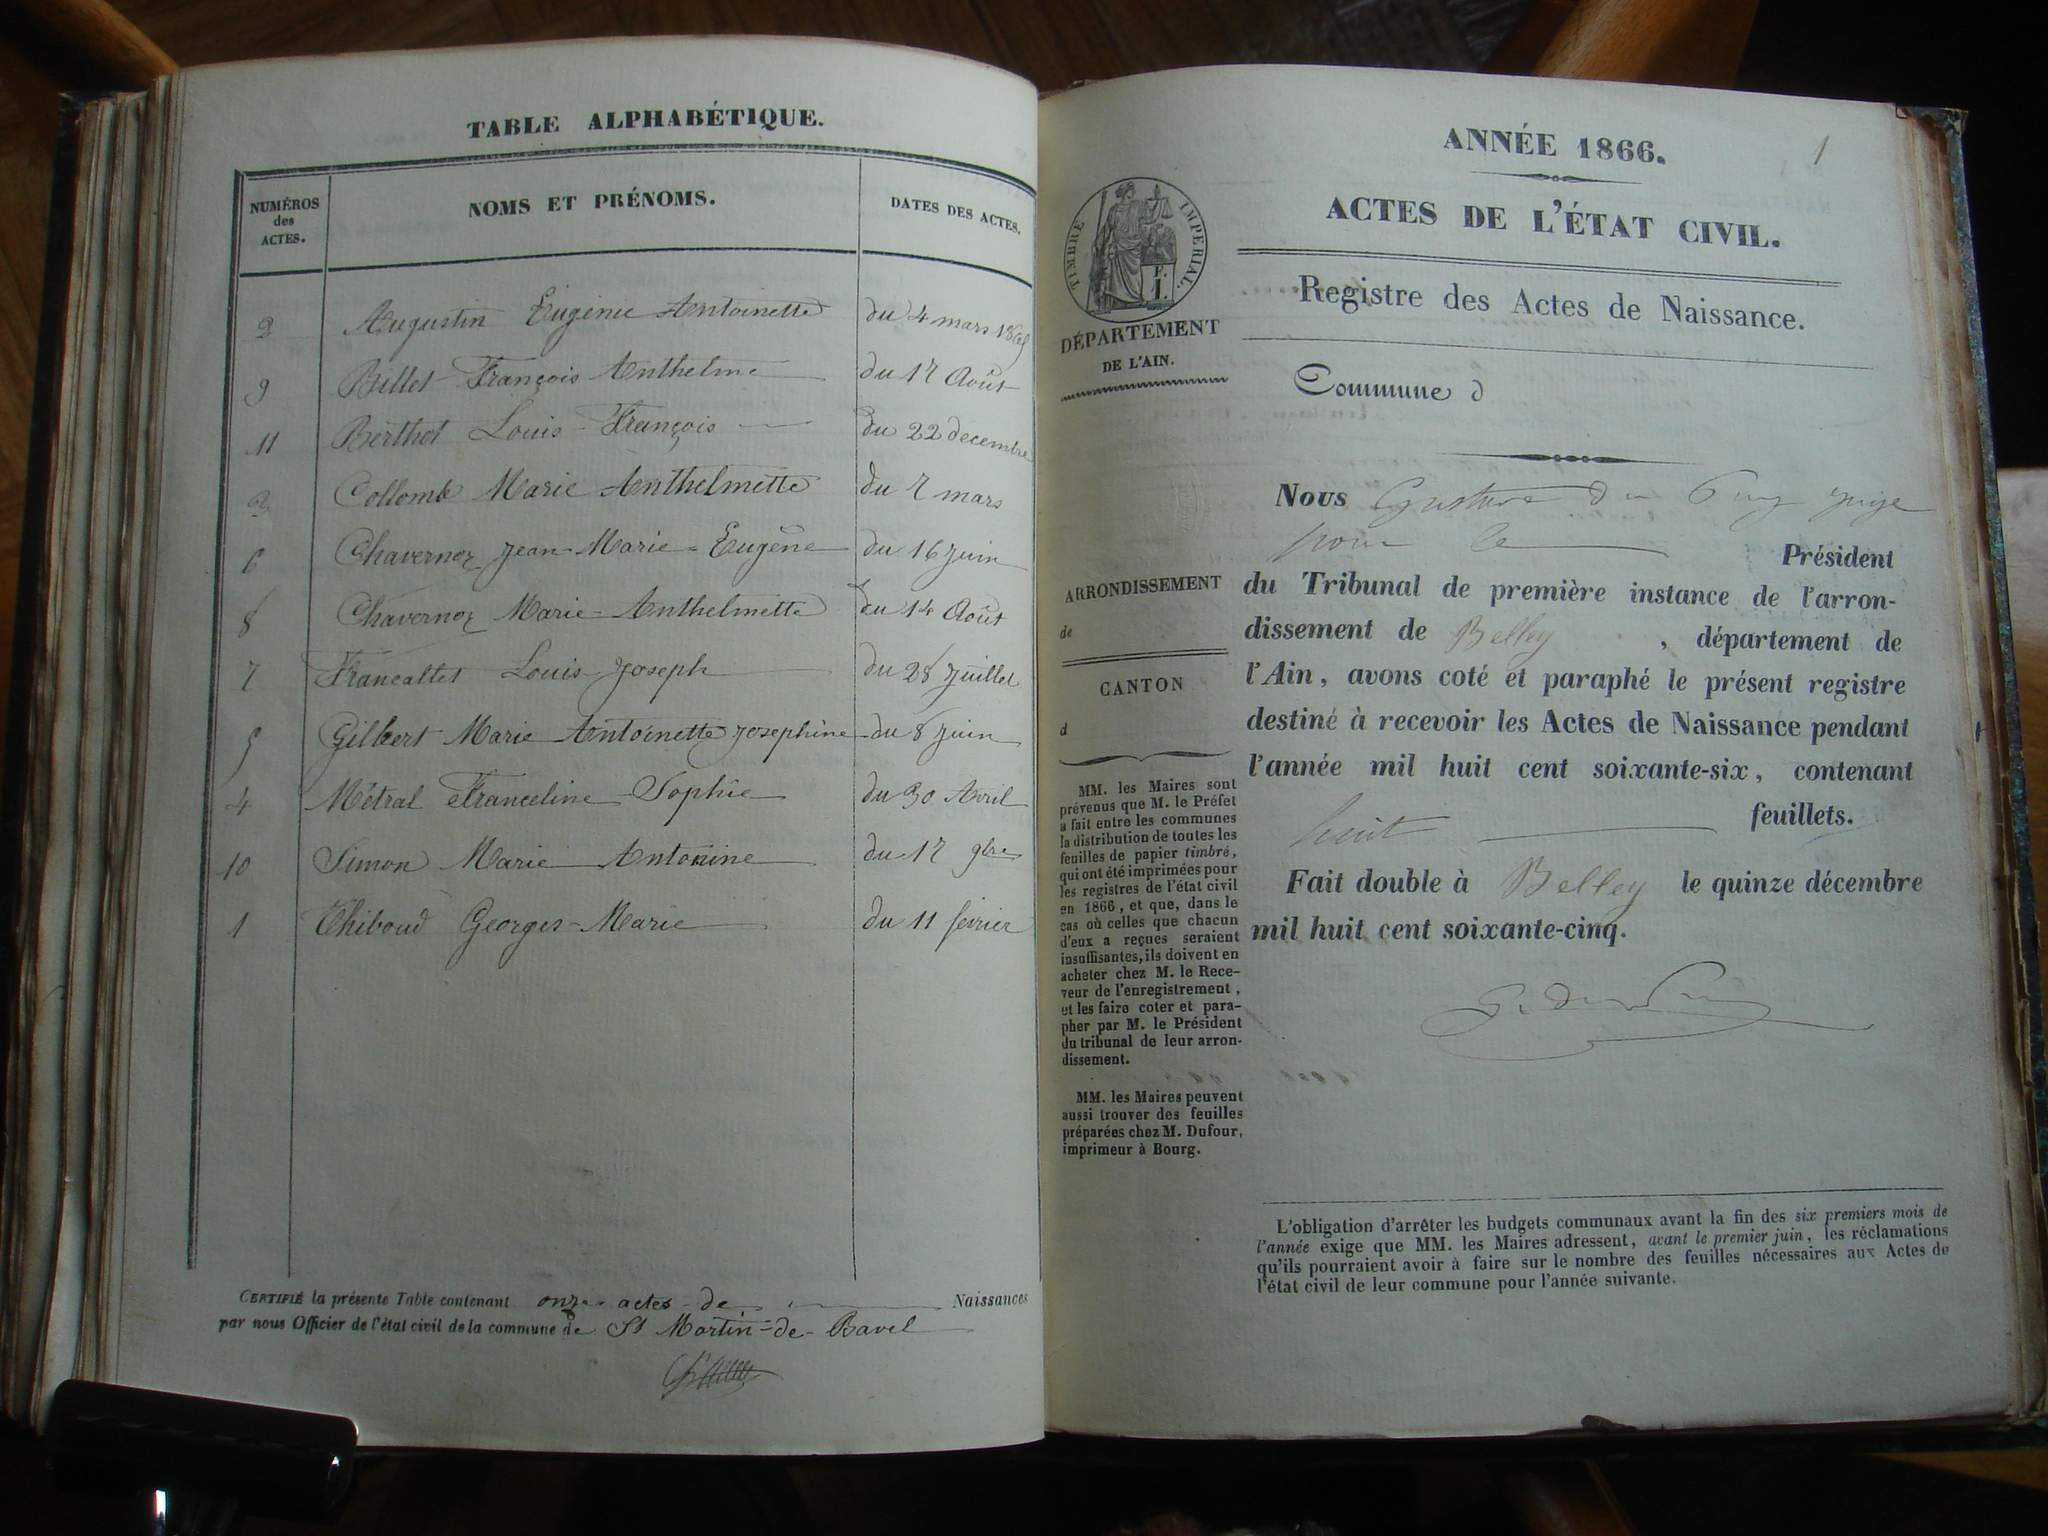 TABLE ALPHABÉTIQUE.
NUMÉROS des ACTES. NOMS ET PRÉNOMS. DATES DES ACTES.
2 Augustin Eugénie Antoinette du 4 mars 1865
9 Billet François Anthelme du 17 Août
11 Berthet Louis-François du 22 decembre
Collomb Marie Anthelmette du 7 mars
6 Chavernoz Jean-Marie-Eugêne du 16 juin
8 Chavernoz Marie-Anthelmette du 14 Août
7 Francallet Louis-Joseph du 28 Juillet
5 Gilbert Marie Antoinette Josephine du 8 Juin
4 Métral Franceline Sophie du 30 Avril
10 Simon Marie Antonine du 17 9bre
1 Thiboud Georges-Marie du 11 fevrier
CERTIFIÉ la présente Table contenant onze actes de Naissances
par nous Officier de l'état civil de la commune de St Martin-de-Bavel
1
ANNÉE 1866.
ACTES DE L'ÉTAT CIVIL.
TIMBRE IMPERIAL.
Registre des Actes de Naissance.
DÉPARTEMENT
DE L'AIN.
Commune d
Nous Gustave du Puy juge
pour le Président
du Tribunal de première instance de l'arron-
dissement de Belley, département de
l'Ain, avons coté et paraphé le présent registre
destiné à recevoir les Actes de Naissance pendant
l'année mil huit cent soixante-six, contenant
huit feuillets.
Fait double à Belley le quinze décembre
mil huit cent soixante-cinq.
G. du Puy
ARRONDISSEMENT
de
CANTON
d
MM. les Maires sont
prévenus que M. le Préfet
a fait entre les communes
la distribution de toutes les
feuilles de papier timbré,
qui ont été imprimées pour
les registres de l'état civil
en 1866, et que, dans le
cas où celles que chacun
d'eux a reçues seraient
insuffisantes, ils doivent en
acheter chez M. le Rece-
veur de l'enregistrement,
et les faire coter et para-
pher par M. le Président
du tribunal de leur arron-
dissement.
MM. les Maires peuvent
aussi trouver des feuilles
préparées chez M. Dufour,
imprimeur à Bourg.
L'obligation d'arrêter les budgets communaux avant la fin des six premiers mois de
l'année exige que MM. les Maires adressent, avant le premier juin, les réclamations
qu'ils pourraient avoir à faire sur le nombre des feuilles nécessaires aux Actes de
l'état civil de leur commune pour l'année suivante.